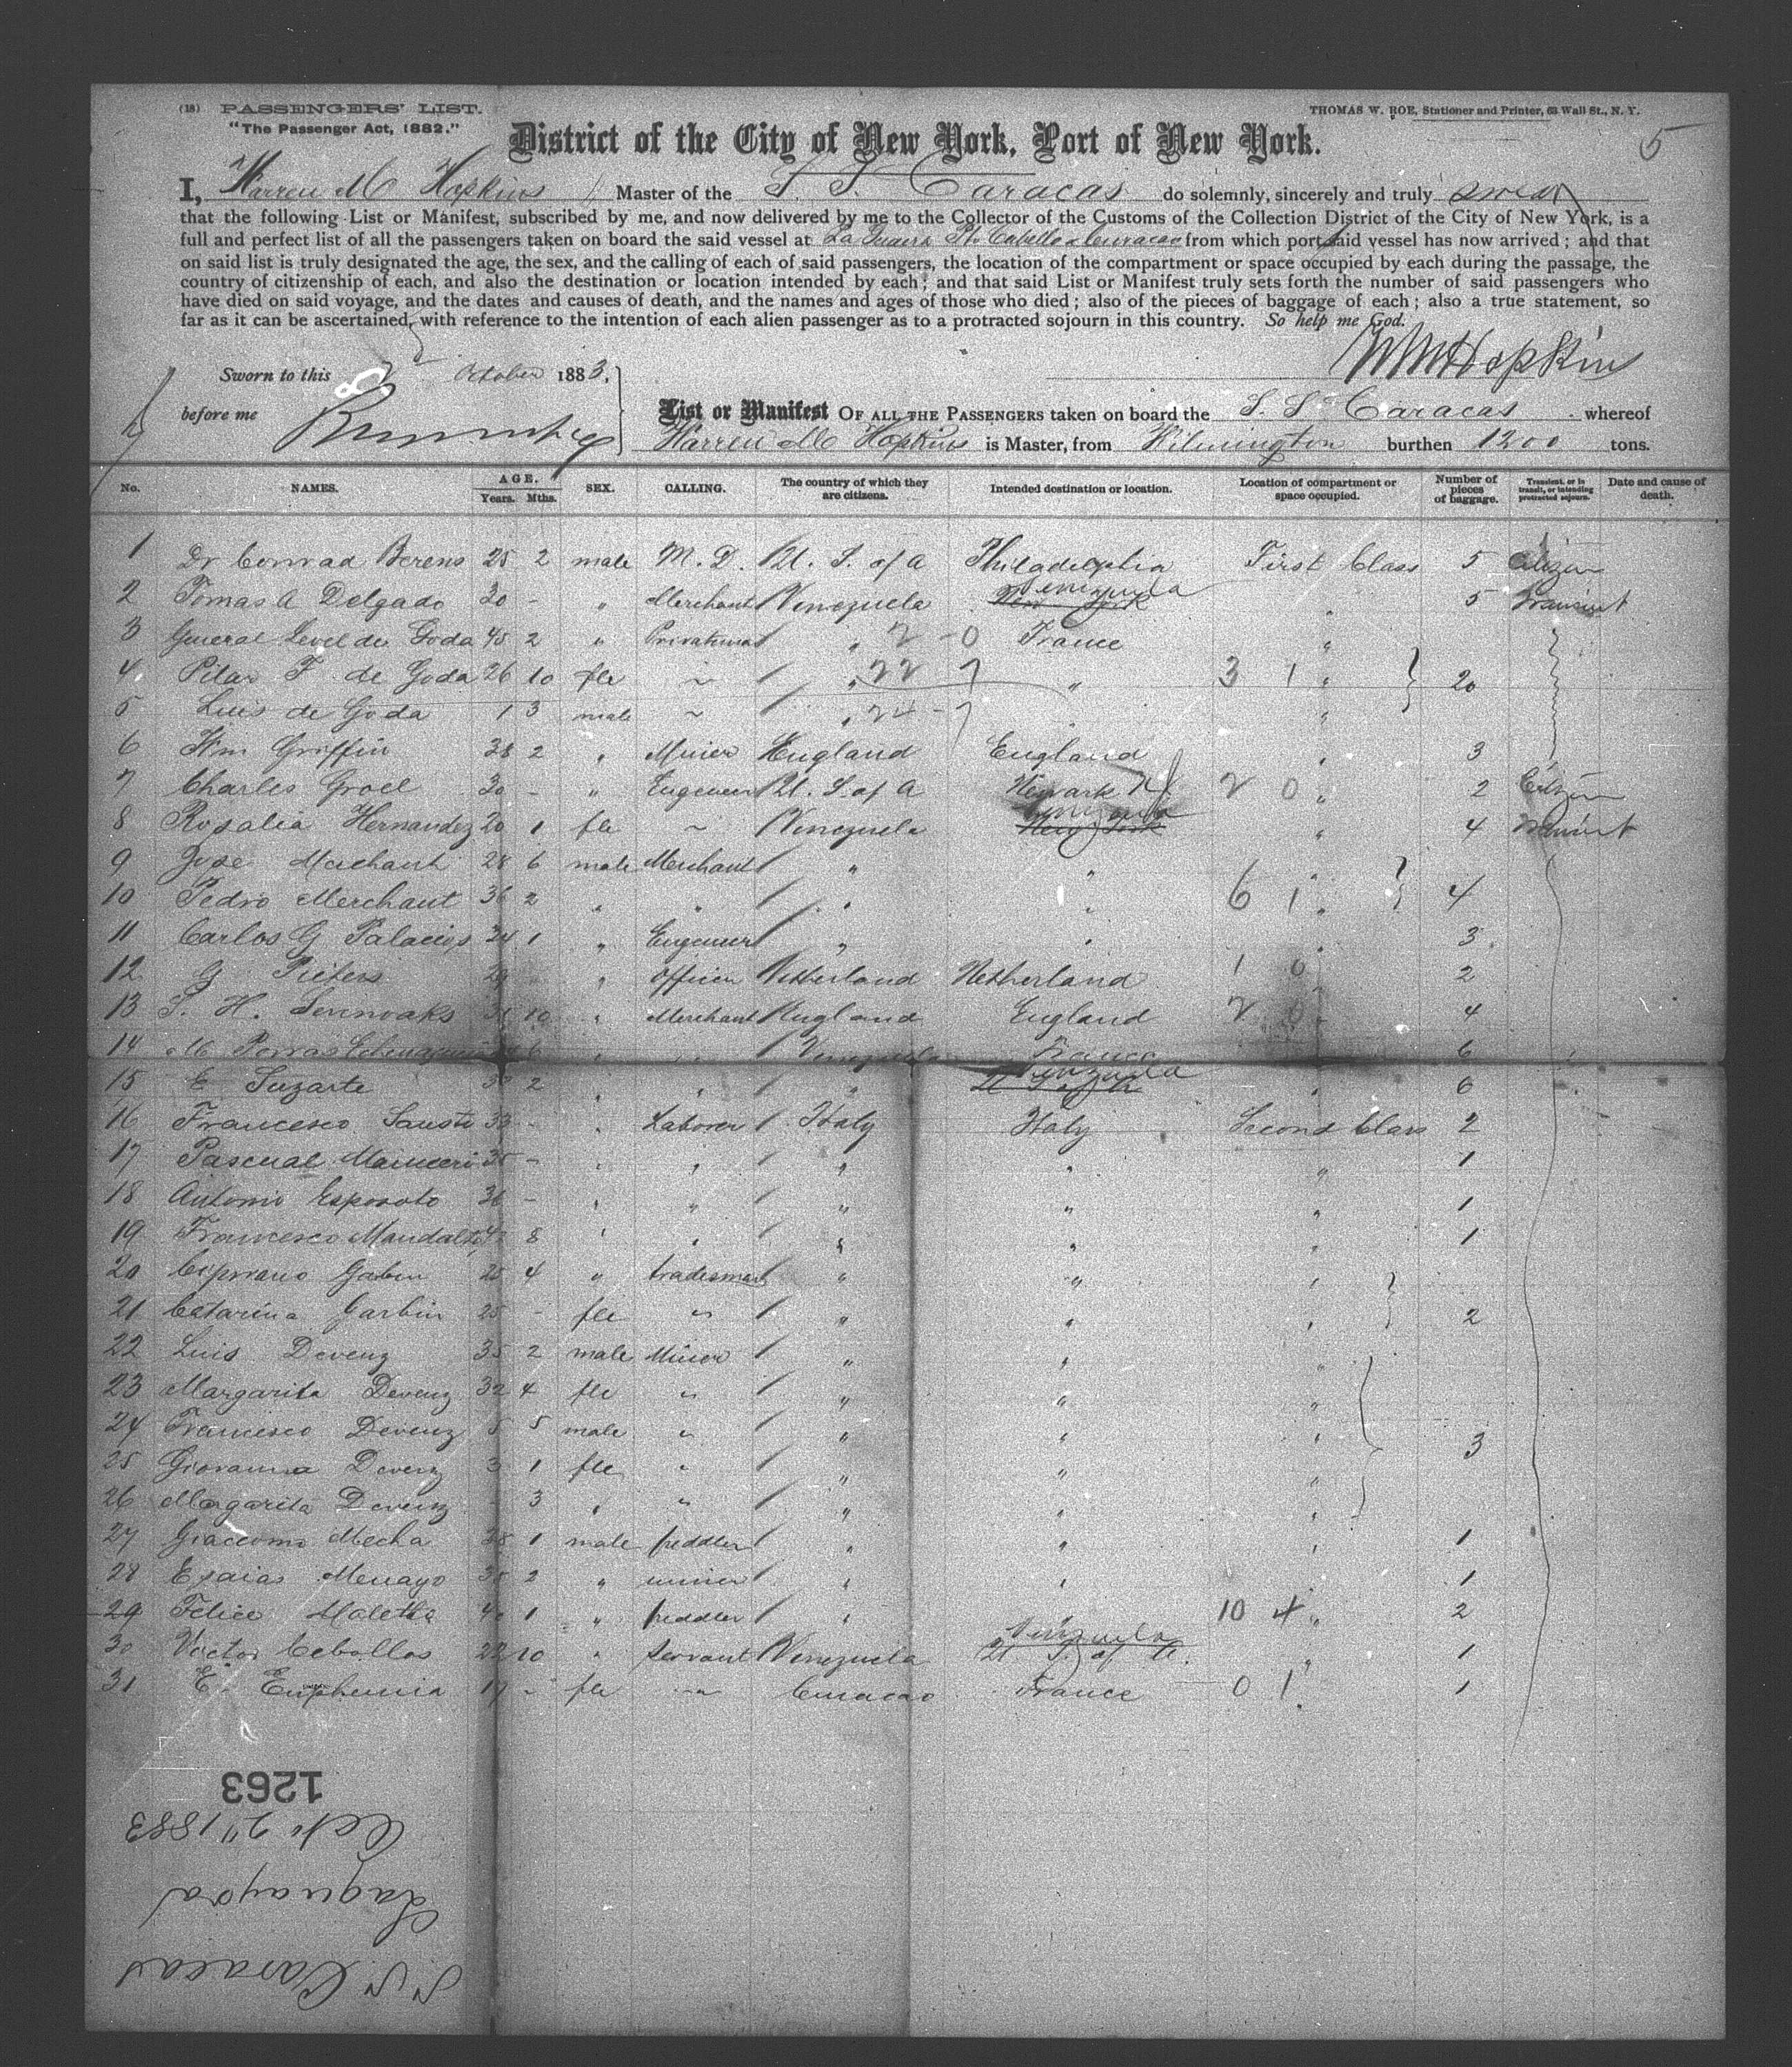 (18) PASSENGERS' LIST.
"The Passenger Act, 1882."
THOMAS W. ROE, Stationer and Printer, 63 Wall St., N. Y.
5
District of the City of New York, Port of New York.
I, Warren M Hopkins Master of the S. S. Caracas do solemnly, sincerely and truly swear
that the following List or Manifest, subscribed by me, and now delivered by me to the Collector of the Customs of the Collection District of the City of New York, is a
full and perfect list of all the passengers taken on board the said vessel at La Guaira Pto Cabello & Curacao from which port said vessel has now arrived; and that
on said list is truly designated the age, the sex, and the calling of each of said passengers, the location of the compartment or space occupied by each during the passage, the
country of citizenship of each, and also the destination or location intended by each; and that said List or Manifest truly sets forth the number of said passengers who
have died on said voyage, and the dates and causes of death, and the names and ages of those who died; also of the pieces of baggage of each; also a true statement, so
far as it can be ascertained, with reference to the intention of each alien passenger as to a protracted sojourn in this country. So help me God.
WM Hopkins
Sworn to this October 1883,
before me
List or Manifest OF ALL THE PASSENGERS taken on board the S. S. Caracas whereof
Warren M Hopkins is Master, from Wilmington burthen 1200 tons.
No. NAMES. AGE. Years. Mths. SEX. CALLING. The country of which they are citizens. Intended destination or location. Location of compartment or space occupied. Number of pieces of baggage. Transient, or in transit, or intending protracted sojourn. Date and cause of death.
1 Dr Conrad Berens 25 2 male M. D. U. S. of A Philadelphia First Class 5 Citizen
2 Tomas A Delgado 30 - " Merchant Venezuela New York Venezuela " 5 Transient
3 General Level de Goda 45 2 " " 2 - 0 France "
4 Pilar F de Goda 26 10 fle ~ " 22 7 " 3 1 " 20
5 Luis de Goda 1 3 male ~ " 24 - 7 "
6 Wm Griffin 38 2 " Miner England England " 3
7 Charles Groel 30 - " Engeneer U. S. of A Newark NJ 2 0 " 2 Citizen
8 Rosalia Hernandez 20 1 fle ~ Venezuela New York Venezuela " 4 Transient
9 Jose Merchant 28 6 male Merchant " " "
10 Pedro Merchant 36 2 " " " " 6 1 " 4
11 Carlos G Palacios 24 1 " Engeneer " " " 3
12 G Pieters 29 " Officer Netherland Netherland 1 0 2
13 S. H. 10 " Merchant England England 2 0 " 4
14 M Porras 6 " " Venezuela France 6
15 E Suzarte 2 " " " U S of A Venezuela " 6
16 Francesco 33 - " Laborer Italy Italy Second Class 2
17 Pascual 35 - " " " " " 1
18 Antonio Esposoto 36 - " " " " " 1
19 Francesco 8 " " " " " 1
20 Cipriano Gabin 25 4 " tradesman " " "
21 Catarina Garbin 25 - fle " " " " 2
22 Luis Devenz 35 2 male Miner " " "
23 Margarita Devenz 32 4 fle " " " "
24 Francesco Devenz 5 5 male " " " " 3
25 Giovanna Devenz 3 1 fle " " " "
26 Margarita Devenz - 3 " " " " "
27 Giaccomo Mecha 38 1 male peddler " " " 1
28 Esaias Menayo 35 2 " miner " " 1
29 Felice Maletta 40 1 " peddler " " 10 4 " 2
30 Victor Ceballos 22 10 " Servant Venezuela Venezuela U. S. of A. " 1
31 E. Euphemia 17 - fle ~ Curacao France 0 1 " 1
1263
Oct. 2" 1883
Laguayra
S. S. Caracas